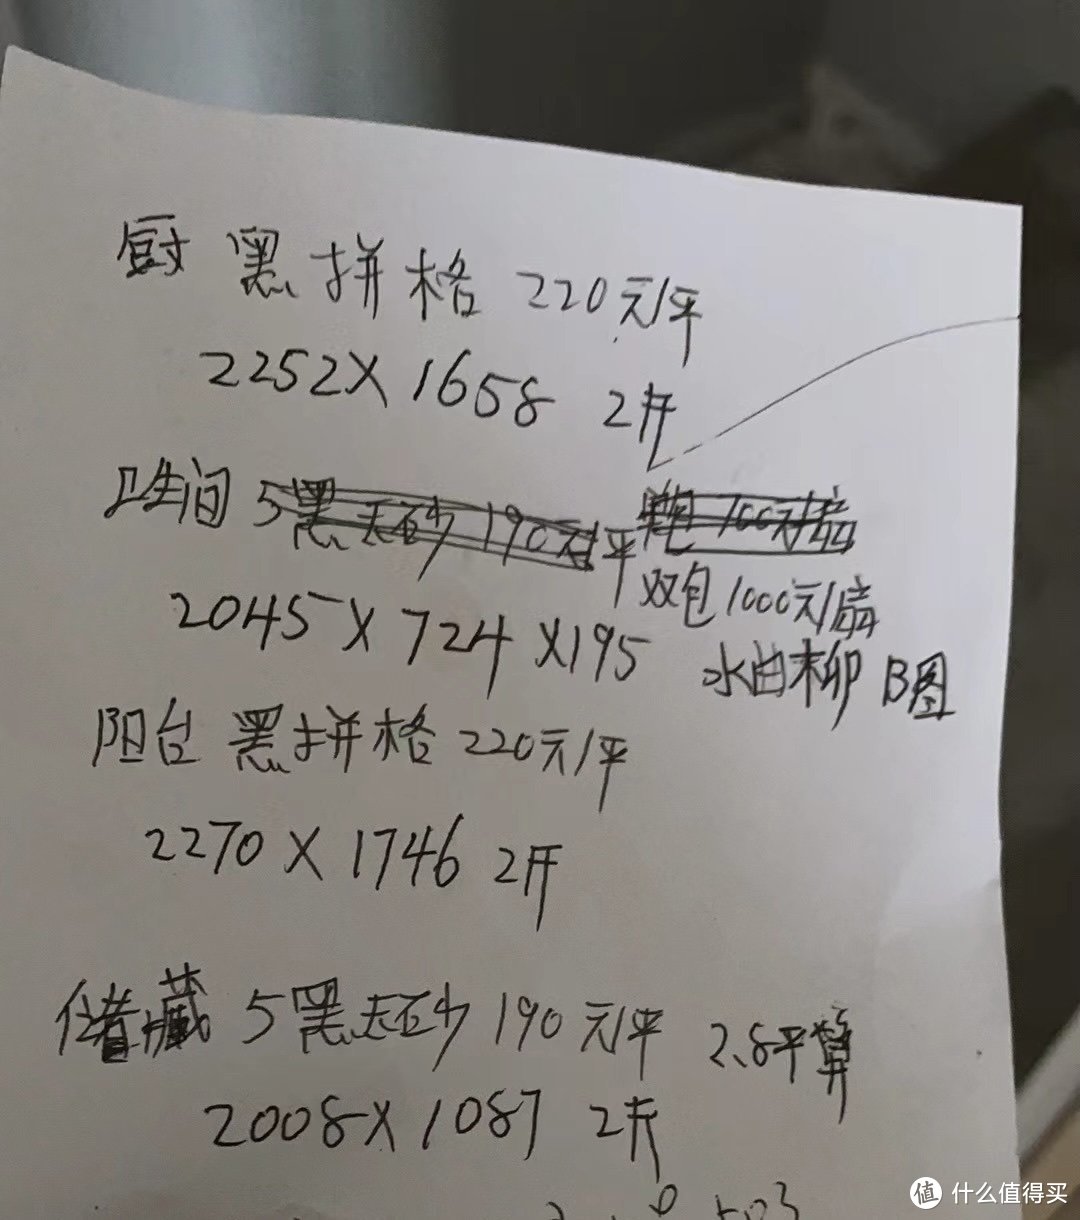 厨 黑拼格 220元/平
2252X1658 2开
卫生间 5黑无砂 190元/平 单包 100元/扇
双包1000元/扇
2045X724X195 水曲柳 B图
阳台 黑拼格 220元/平
2270X1746 2开
储藏 5黑无砂 190元/平 2.8平算
2008X1087 2开
503
值 什么值得买